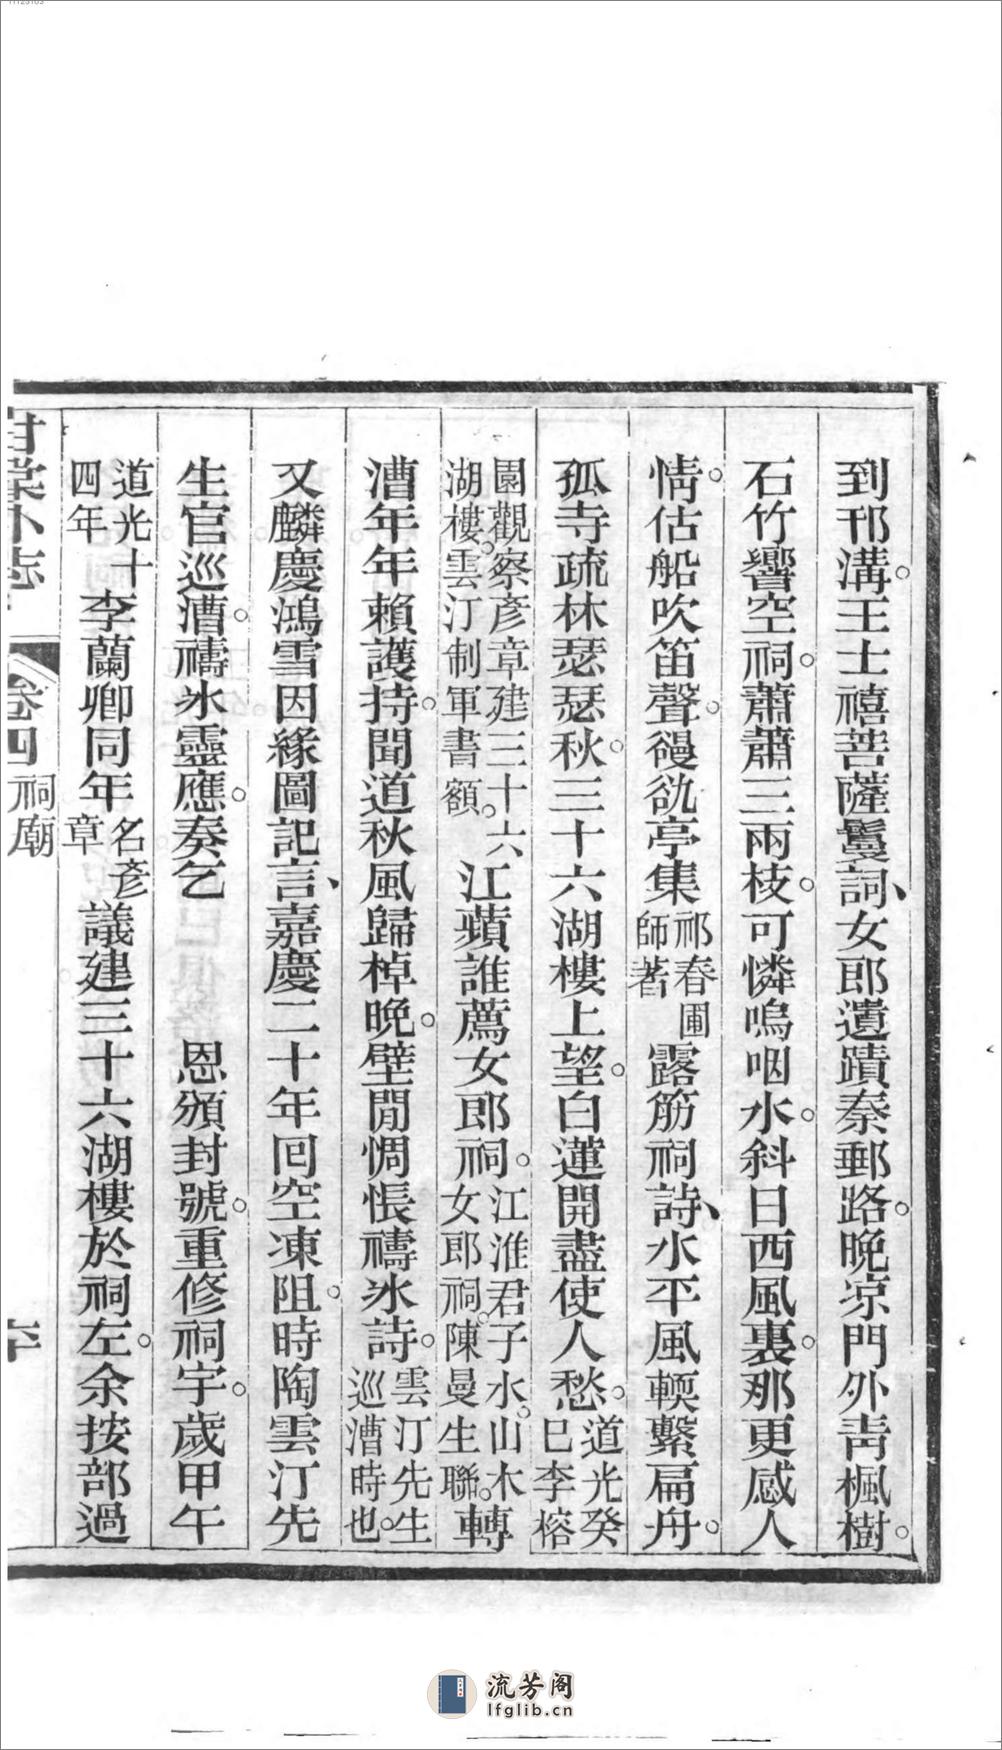 到邗溝。王士禧菩薩鬘詞、女郎遺蹟秦郵路。晚凉門外靑楓樹。
石竹響空祠。蕭蕭三兩枝。可憐嗚咽水。斜日西風裏。那更感人
情。估船吹笛聲。䜱䜪亭集祁春圃師著露筋祠詩、水平風輭繫扁舟。
孤寺疏林瑟瑟秋。三十六湖樓上望。白蓮開盡使人愁。道光癸巳李榕
園觀察彥章建三十六湖樓。雲汀制軍書額。江蘋誰薦女郎祠。江淮君子水。山木女郎祠。陳曼生聯。轉
漕年年賴護持。聞道秋風歸棹晚。壁閒惆悵禱冰詩。雲汀先生巡漕時也。
又麟慶鴻雪因緣圖記言、嘉慶二十年回空凍阻。時陶雲汀先
生官巡漕。禱冰靈應。奏乞 恩頒封號。重修祠宇。歲甲午
道光十四年李蘭卿同年名彥章議建三十六湖樓於祠左。余按部過
甘棠小志 卷四 祠廟
流芳阁
lfglib.cn